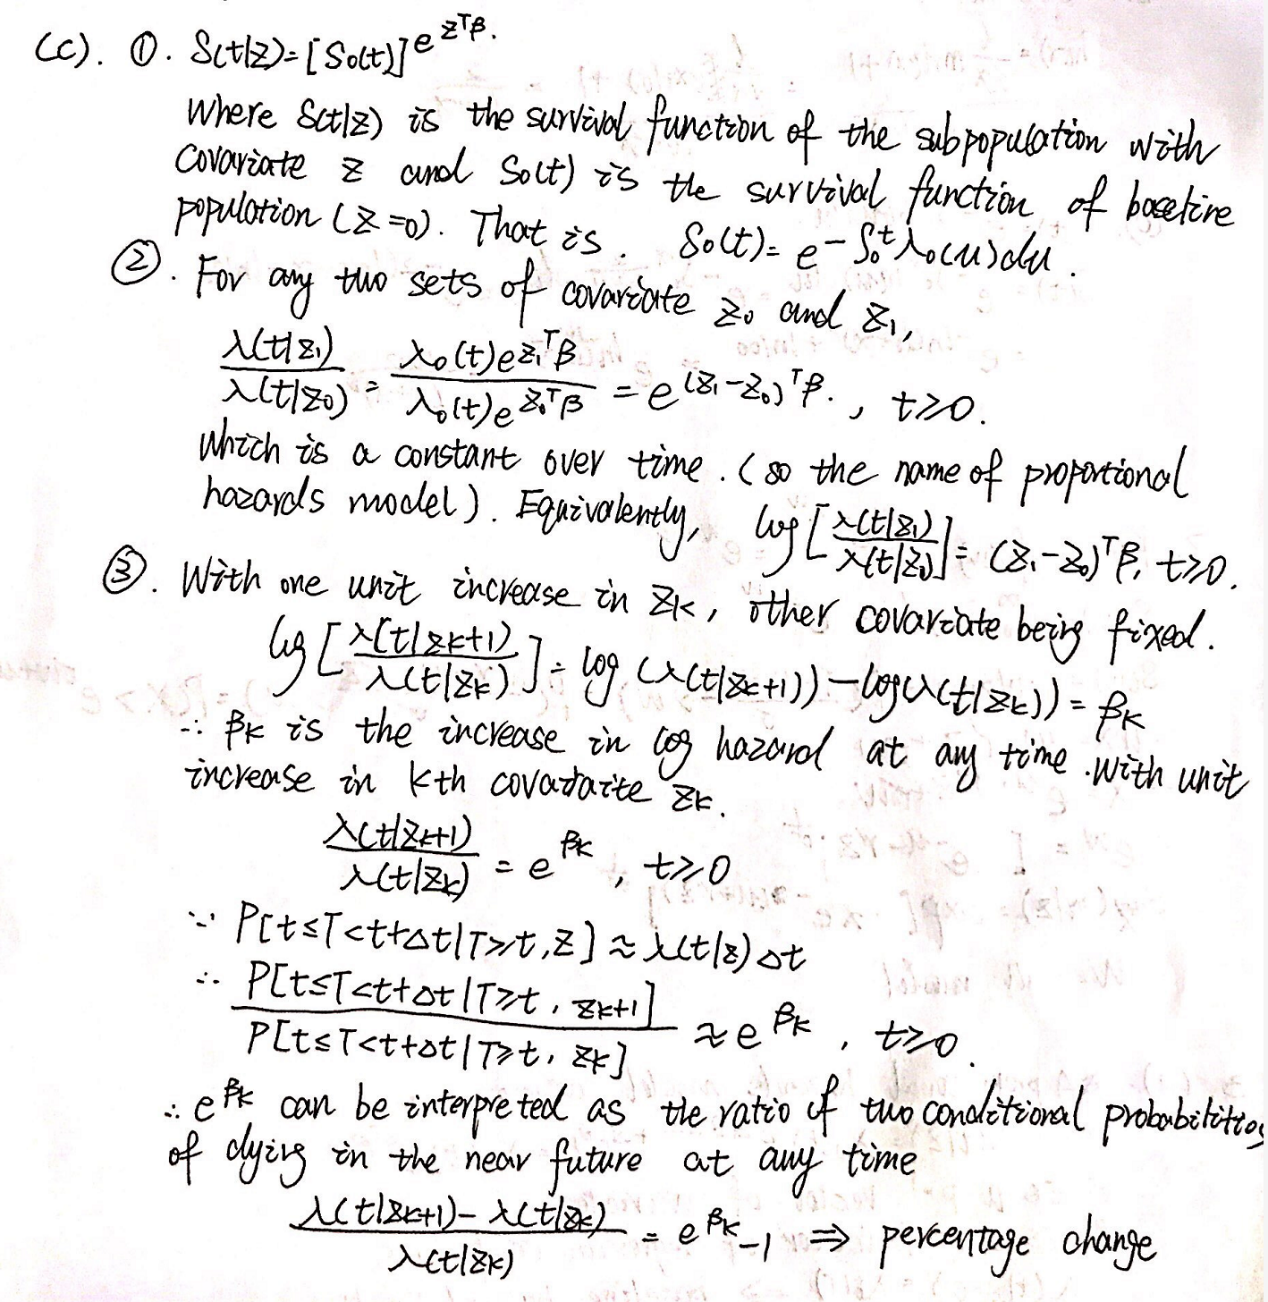 (C). ①. S(t|z)=[S₀(t)]^{e^{z^Tβ}}.
Where S(t|z) is the survival function of the subpopulation with
covariate z and S₀(t) is the survival function of baseline
population (z=0). That is. S₀(t)= e^{-∫₀^t λ₀(u)du}.
②. For any two sets of covariate z₀ and z₁,
λ(t|z₁)/λ(t|z₀) = λ₀(t)e^{z₁^Tβ}/λ₀(t)e^{z₀^Tβ} = e^{(z₁-z₀)^Tβ}., t≥0.
Which is a constant over time. (so the name of proportional
hazards model). Equivalently, log[λ(t|z₁)/λ(t|z₀)] = (z₁-z₀)^Tβ, t≥0.
③. With one unit increase in zₖ, other covariate being fixed.
log[λ(t|zₖ+1)/λ(t|zₖ)] = log(λ(t|zₖ+1)) - log(λ(t|zₖ)) = βₖ
∴ βₖ is the increase in log hazard at any time. With unit
increase in kth zₖ.
λ(t|zₖ+1)/λ(t|zₖ) = e^{βₖ}, t≥0
∵ P[t≤T<t+Δt|T≥t,z] ≈ λ(t|z)Δt
∴ P[t≤T<t+Δt|T≥t, zₖ+1]/P[t≤T<t+Δt|T≥t, zₖ] ≈ e^{βₖ}, t≥0.
∴ e^{βₖ} can be interpreted as the ratio of two conditional probabilities
of dying in the near future at any time
(λ(t|zₖ+1)-λ(t|zₖ))/λ(t|zₖ) = e^{βₖ}-1 ⇒ percentage change